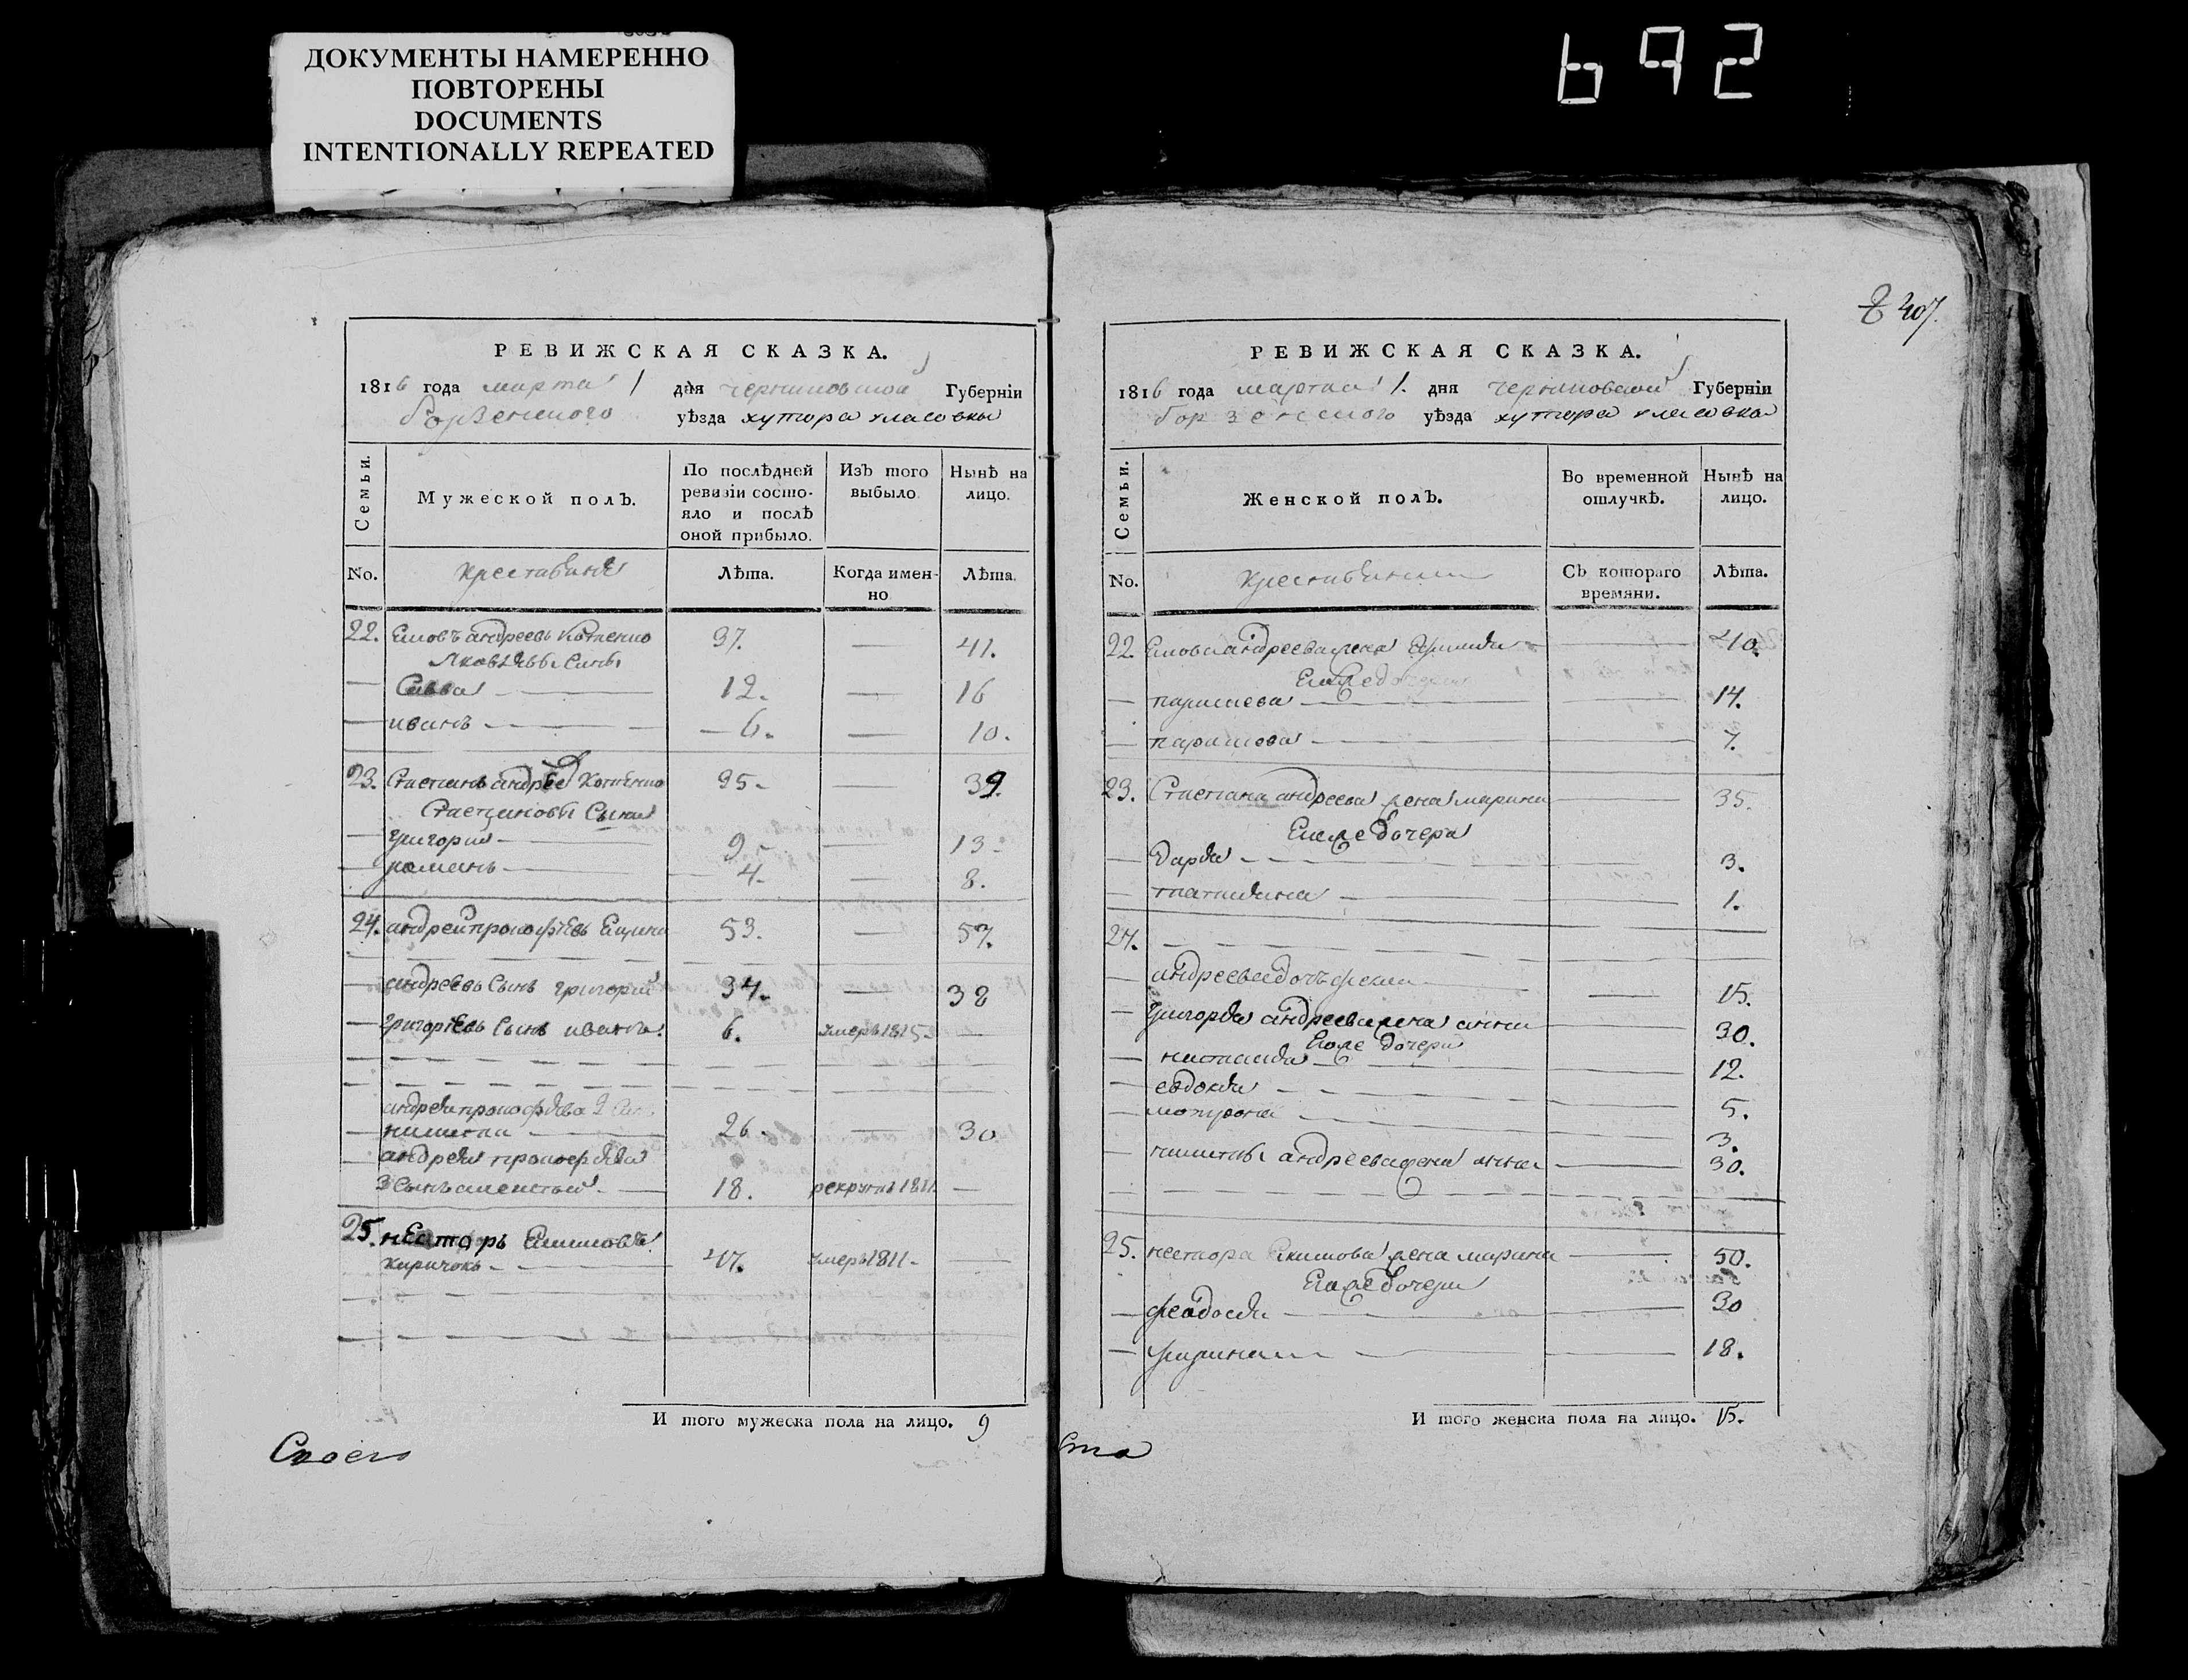 ДОКУМЕНТЫ НАМЕРЕННО
ПОВТОРЕНЫ
DOCUMENTS
INTENTIONALLY REPEATED
692
407.
РЕВИЖСКАЯ СКАЗКА.
1816 года марта 1 дня черниговской Губернїи
борзенского уѣзда хутора власовки
Семьи.
Мужеской полЪ.
По послѣдней ревизїи состояло и послѣ оной прибыло.
ИзЪ того выбыло.
Нынѣ на лицо.
No.
крестьяне
Лѣта.
Когда имен-
но
Лѣта.
22. Яковъ андреевъ Котенко 37. — 41.
Яковлевы Сины
— Савва — 12. — 16
— иванъ — 6. — 10.
23. Степанъ андрее Котенко 35 — 39.
Степановы Сыны
— григорий — 9. — 13
— раманъ — 4. — 8.
24. андрей прокофіевъ 53. — 57.
— андреевъ Сынъ григорий 34. — 38
— григоріевъ Сынъ иванъ. 6. умеръ 1815 —
андрея прокофіева 2 Сынъ
— никита — 26. — 30
— андрея прокофіева
3 Сынъ алексѣй. — 18. рекрутъ 1811 —
25. несторъ Екимовъ
Киричокъ — 47. умеръ 1811 — —
И того мужеска пола на лицо. 9
РЕВИЖСКАЯ СКАЗКА.
1816 года марта 1. дня черниговской Губернїи
борзенского уѣзда хутора власовки
Семьи.
Женской полЪ.
Во временной отлучкѣ.
Нынѣ на лицо.
No.
Съ котораго
времяни.
Лѣта.
22. Якова андреева жена — 40.
Ево же дочери
— параскева — — 14.
— — — 7.
23. Степана андреева жена марина — 35.
Ево же дочери
— дарья — — 3.
— татияна — — 1.
24.
— андреева дочъ — — 15.
— григорія андреева жена анна — 30.
Ево же дочери
— настасия — — 12.
— евдокия — — 5.
— мотрона — — 3.
— никиты андреева жена анна — 30.
25. нестора Екимова жена марина — 50.
Ево же дочери
— феодосия — — 30
— ирина — — 18.
И того женска пола на лицо. 15.